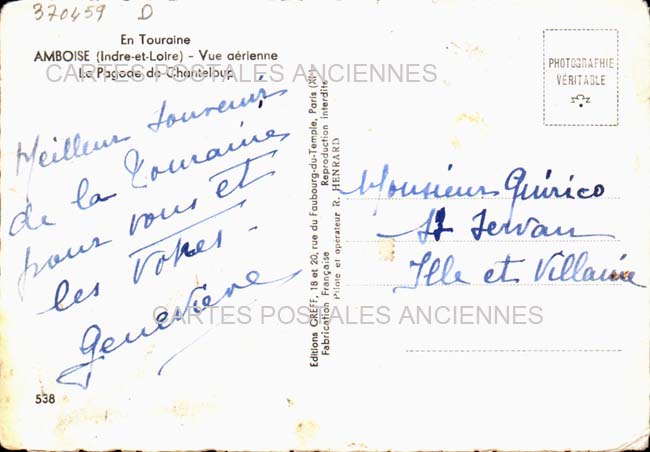 370459 D
En Touraine
AMBOISE (Indre-et-Loire) - Vue aérienne
La Pagode de Chanteloup
CARTES POSTALES ANCIENNES
PHOTOGRAPHIE
VÉRITABLE
Meilleur souvenir
de la Touraine
pour vous et
les Vôtres -
Geneviève
538
Editions GREFF, 18 et 20, rue du Faubourg-du-Temple, Paris (XIe)
Fabrication Française Reproduction interdite
Pilote et opérateur R. HENRARD
Monsieur Quirico
St Servan
Ille et Villaine
CARTES POSTALES ANCIENNES